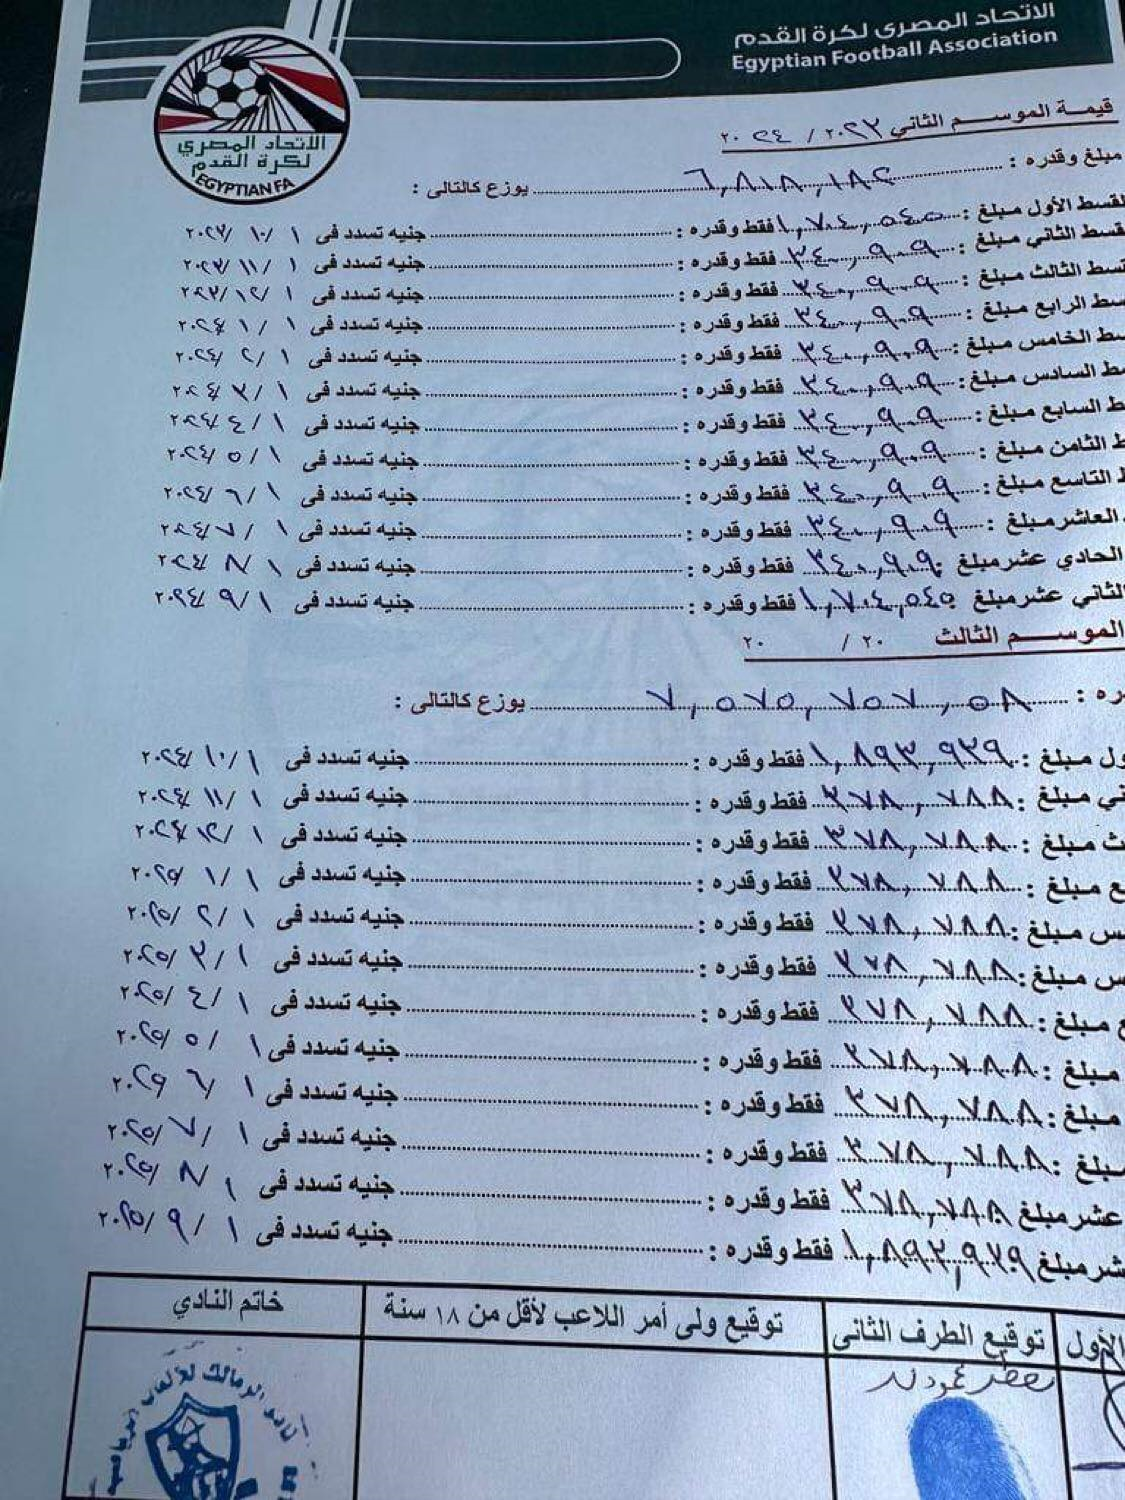 الاتحاد المصرى لكرة القدم
Egyptian Football Association
الاتحاد المصري
لكرة القدم
EGYPTIAN FA
قيمة الموسم الثاني ٢٠٢٣ / ٢٠٢٤
مبلغ وقدره : ٦,٨١٨,١٨٢ يوزع كالتالى :
لقسط الأول مبلغ : ١,٧٠٤,٥٤٥ فقط وقدره : جنيه تسدد فى ١ / ١٠ / ٢٠٢٣
قسط الثاني مبلغ : ٣٤٠,٩٠٩ فقط وقدره : جنيه تسدد فى ١ / ١١ / ٢٠٢٣
قسط الثالث مبلغ : ٣٤٠,٩٠٩ فقط وقدره : جنيه تسدد فى ١ / ١٢ / ٢٠٢٣
سط الرابع مبلغ : ٣٤٠,٩٠٩ فقط وقدره : جنيه تسدد فى ١ / ١ / ٢٠٢٤
سط الخامس مبلغ : ٣٤٠,٩٠٩ فقط وقدره : جنيه تسدد فى ١ / ٢ / ٢٠٢٤
سط السادس مبلغ : ٣٤٠,٩٠٩ فقط وقدره : جنيه تسدد فى ١ / ٣ / ٢٠٢٤
ط السابع مبلغ : ٣٤٠,٩٠٩ فقط وقدره : جنيه تسدد فى ١ / ٤ / ٢٠٢٤
ط الثامن مبلغ : ٣٤٠,٩٠٩ فقط وقدره : جنيه تسدد فى ١ / ٥ / ٢٠٢٤
ط التاسع مبلغ : ٣٤٠,٩٠٩ فقط وقدره : جنيه تسدد فى ١ / ٦ / ٢٠٢٤
العاشر مبلغ : ٣٤٠,٩٠٩ فقط وقدره : جنيه تسدد فى ١ / ٧ / ٢٠٢٤
الحادي عشر مبلغ : ٣٤٠,٩٠٩ فقط وقدره : جنيه تسدد فى ١ / ٨ / ٢٠٢٤
الثاني عشر مبلغ : ١,٧٠٤,٥٤٥ فقط وقدره : جنيه تسدد فى ١ / ٩ / ٢٠٢٤
الموسم الثالث ٢٠ / ٢٠
ره : ٧,٥٧٥,٧٥٧,٥٨ يوزع كالتالى :
ول مبلغ : ١,٨٩٣,٩٣٩ فقط وقدره : جنيه تسدد فى ١ / ١٠ / ٢٠٢٤
ني مبلغ : ٣٧٨,٧٨٨ فقط وقدره : جنيه تسدد فى ١ / ١١ / ٢٠٢٤
ث مبلغ : ٣٧٨,٧٨٨ فقط وقدره : جنيه تسدد فى ١ / ١٢ / ٢٠٢٤
ع مبلغ : ٣٧٨,٧٨٨ فقط وقدره : جنيه تسدد فى ١ / ١ / ٢٠٢٥
س مبلغ : ٣٧٨,٧٨٨ فقط وقدره : جنيه تسدد فى ١ / ٢ / ٢٠٢٥
س مبلغ : ٣٧٨,٧٨٨ فقط وقدره : جنيه تسدد فى ١ / ٣ / ٢٠٢٥
ع مبلغ : ٣٧٨,٧٨٨ فقط وقدره : جنيه تسدد فى ١ / ٤ / ٢٠٢٥
مبلغ : ٣٧٨,٧٨٨ فقط وقدره : جنيه تسدد فى ١ / ٥ / ٢٠٢٥
مبلغ : ٣٧٨,٧٨٨ فقط وقدره : جنيه تسدد فى ١ / ٦ / ٢٠٢٥
بلغ : ٣٧٨,٧٨٨ فقط وقدره : جنيه تسدد فى ١ / ٧ / ٢٠٢٥
عشر مبلغ ٣٧٨,٧٨٨ فقط وقدره : جنيه تسدد فى ١ / ٨ / ٢٠٢٥
شر مبلغ ١,٨٩٣,٩٣٩ فقط وقدره : جنيه تسدد فى ١ / ٩ / ٢٠٢٥
الأول توقيع الطرف الثانى توقيع ولى أمر اللاعب لأقل من ١٨ سنة خاتم النادي
نادي الزمالك للألعاب الرياضية